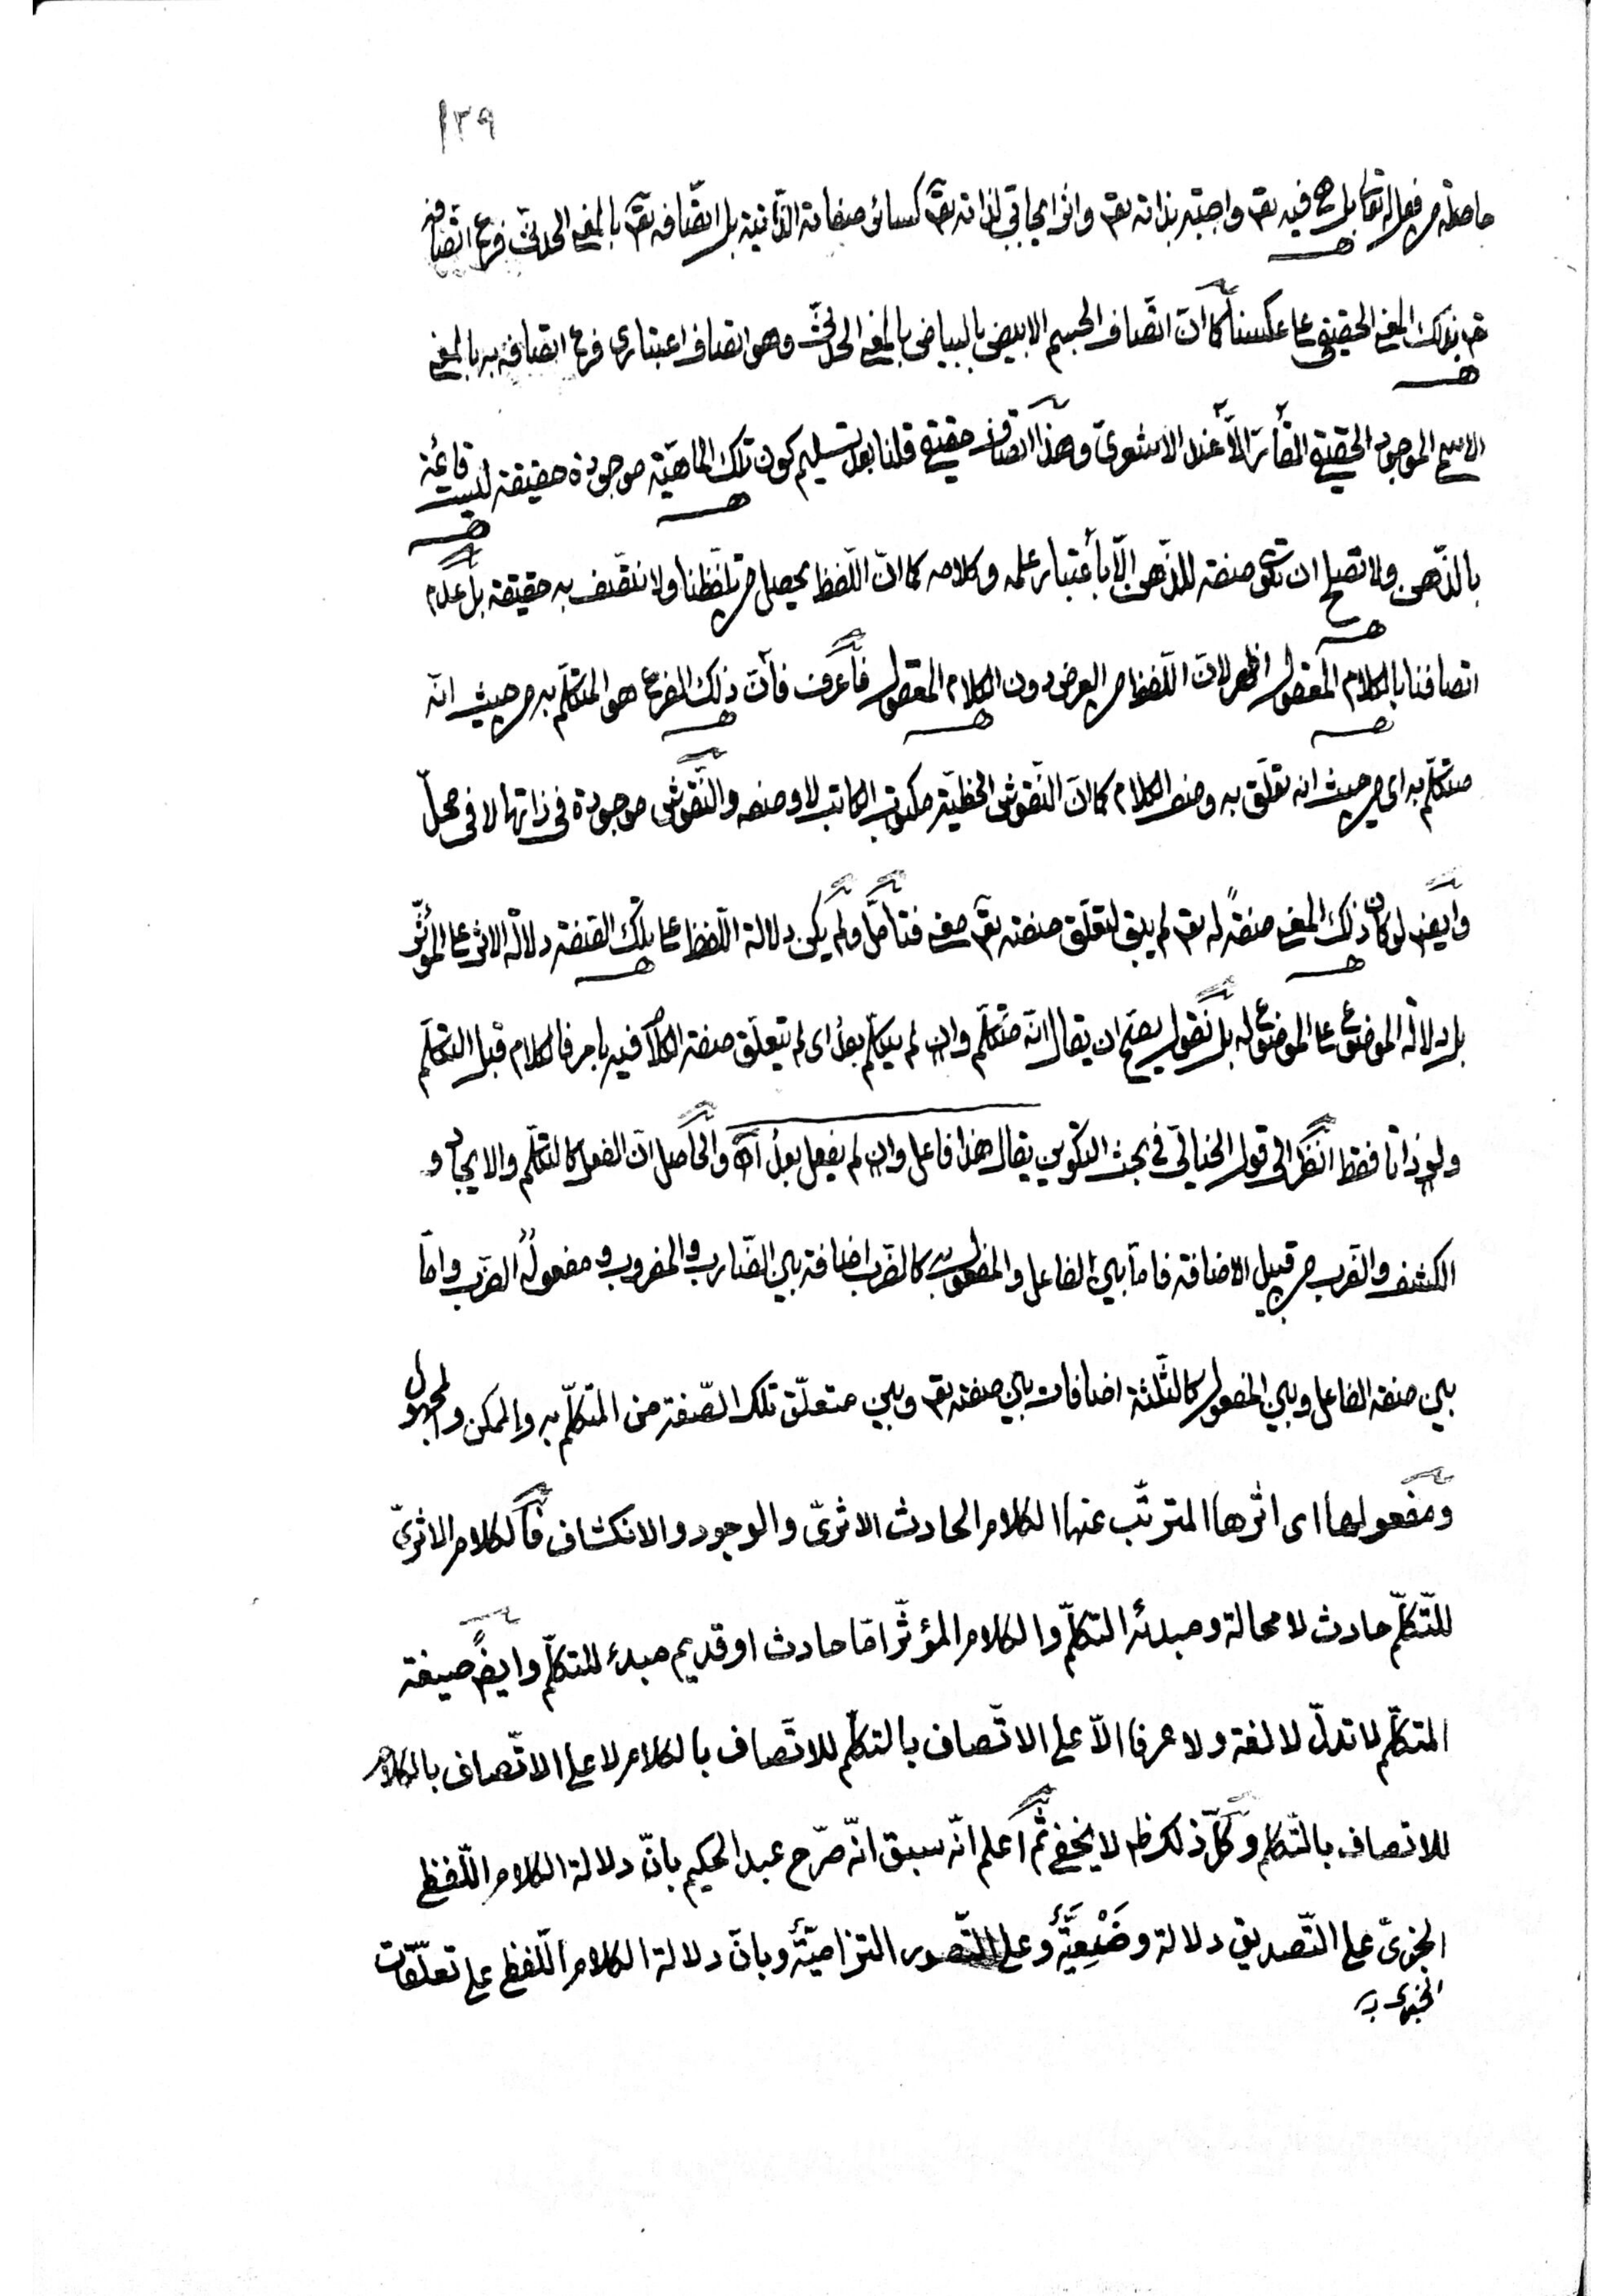 ١٣٩
حاصلة من فعله تقا بل هى فيه تقـ واجبة بذاته تقـ وانى ايجابى لذاته تقـ كسائر صفاته الذّاتية بل اتّصافه تقـ بالمعنى الحدثىّ فرع اتّصافه
تقـ بذلك المعنى الحقيقى على عكسنا كما انّ اتّصاف الجسم الابيض بالبياض بالمعنى الحدثىّ وهو اتصاف اعتبارى فرع اتصافه به بالمعنى
الاسمى الموجود الحقيقى القأئر الّا عند الاشعرىّ وهذا اتصاف حقيقى قلنا بعد تسليم كون تلك الماهيّة موجودة حقيقة ليست قائمة
بالذّهن ولا تصلح ان تكون صفة للذّهن الّا بأعتبار علمه وكلامه كما انّ اللّفظ يحصل من تلفّظنا ولا نتّصف به حقيقة بل عدم
اتصافنا بالكلام المعقول اظهر لانّ اللّفظ من العرض دون الكلام المعقول فأعرف فأنّ ذلك المفرع هو المتكلّم به من حيث انّه
متكلّم به اى من حيث انه تعلّق به وصف الكلام كما انّ النّقوش الخطّيّة مكتوب الكاتب لا وصفه والنّقوش موجودة فى ذاتها لا فى محلّ
وايضـ لو كان ذلك المعنى صفةً له تقـ لم يبق لتعلّق صفته تقـ معنى فتأمّل ولم يكن دلالة اللّفظ على تلك الصّفة دلالة الاثر على المؤثّر
بل دلالة الموضوع على الموضوع له بل نقول يصحّ ان يقال انّه متكلّم وان لم يتكلّم بعدُ اى لم يتعلّق صفة الكلام فيه بامر فالكلام قبل التكلّم
ولو ذاتا فقط انظر الى قول الخيالىّ فى بحث التكوين يقال هذا فاعل وان لم يفعل بعدُ اه والحاصل انّ الفعل كالتكلّم والايجاد و
الكشف والضّرب من قبيل الاضافة فامّا بين الفاعل والمفعول كالضّرب اضافة بين الضّارب والمضروب ومفعولُه الضّرب وامّا
بين صفة الفاعل وبين المفعول كالثّلثة اضافات بين صفته تقـ وبين متعلّق تلك الصّفة من المتكلّم به والممكن والمجهول
ومفعولها اى اثرها المترتّب عنها الكلام الحادث الاثرىّ والوجود والانكشاف فالكلام الاثرىّ
للتّكلّم حادث لا محالة ومبدئه التكلّم والكلام المؤثّر امّا حادث او قديم مبدء للتكلّم وايضـً صيغة
المتكلّم لا تدلّ لا لغة ولا عرفا الّا على الاتّصاف بالتكلّم للاتّصاف بالكلام لا على الاتّصاف بالكلام
للاتصاف بالتّكلم وكلّ ذلك ظـ لا يخفى ثمّ أعلم انّه سبق انّه صرّح عبد الحكيم بانّ دلالة الكلام اللّفظى
الخبرىّ على التّصديق دلالة وَضْعِيَّةٌ وعلى التّصور التزاميّةٌ وبانّ دلالة الكلام اللّفظى على تعلّقات